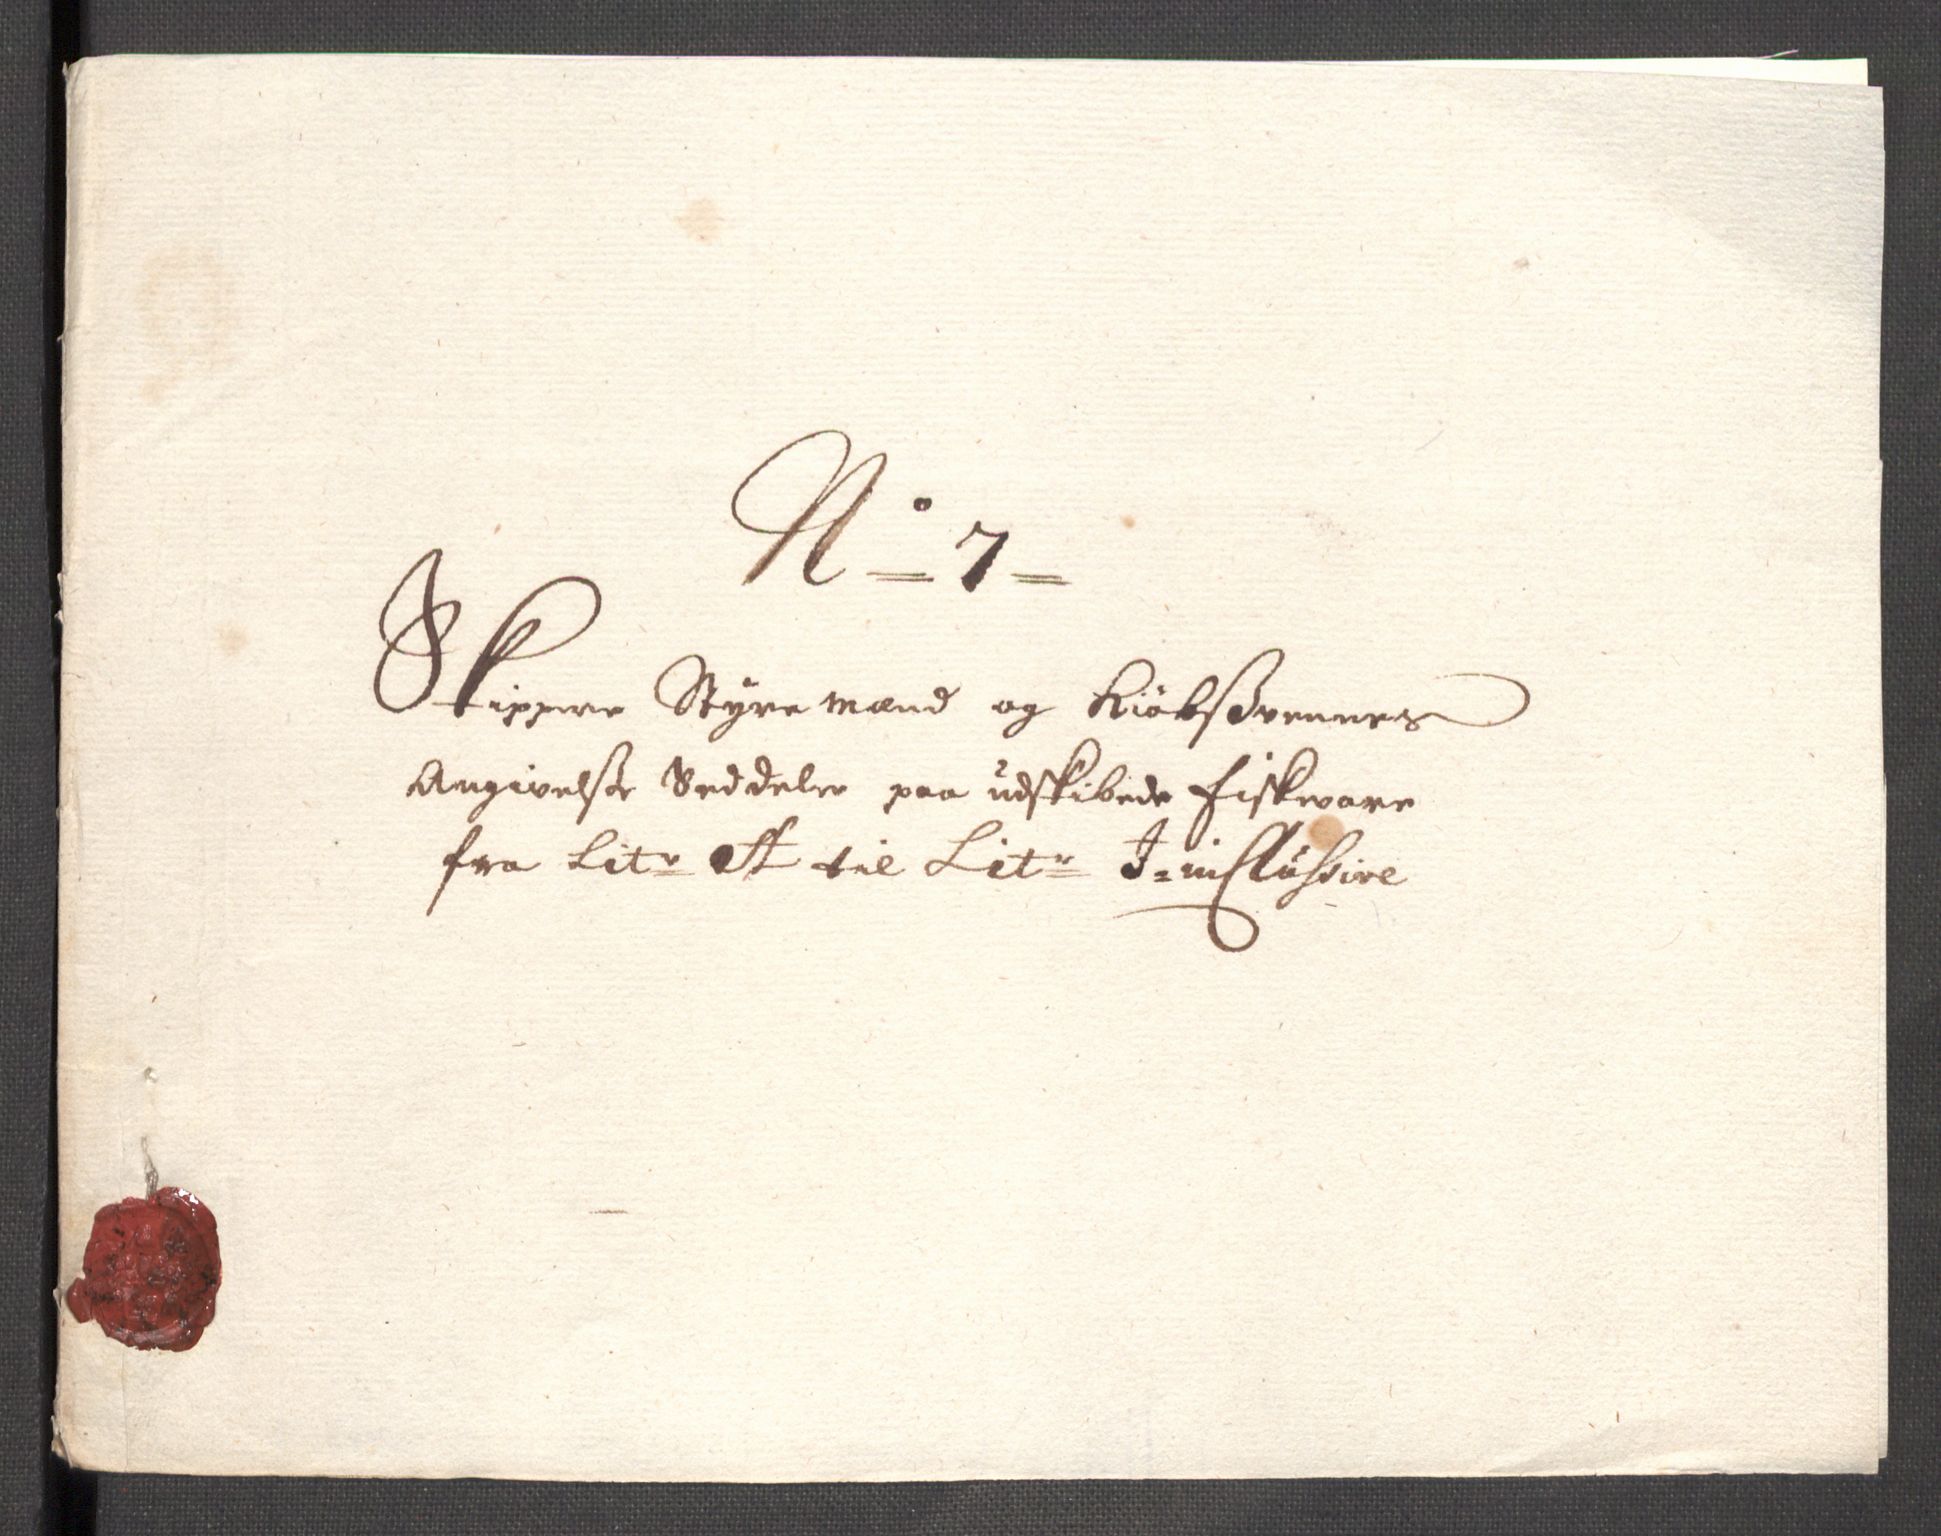 No 7
Skippere Styremænd og Kiöbsvennes
Angivelse Seddeler paa udskibede fiskevare
fra Litr A til Litr J inclusive